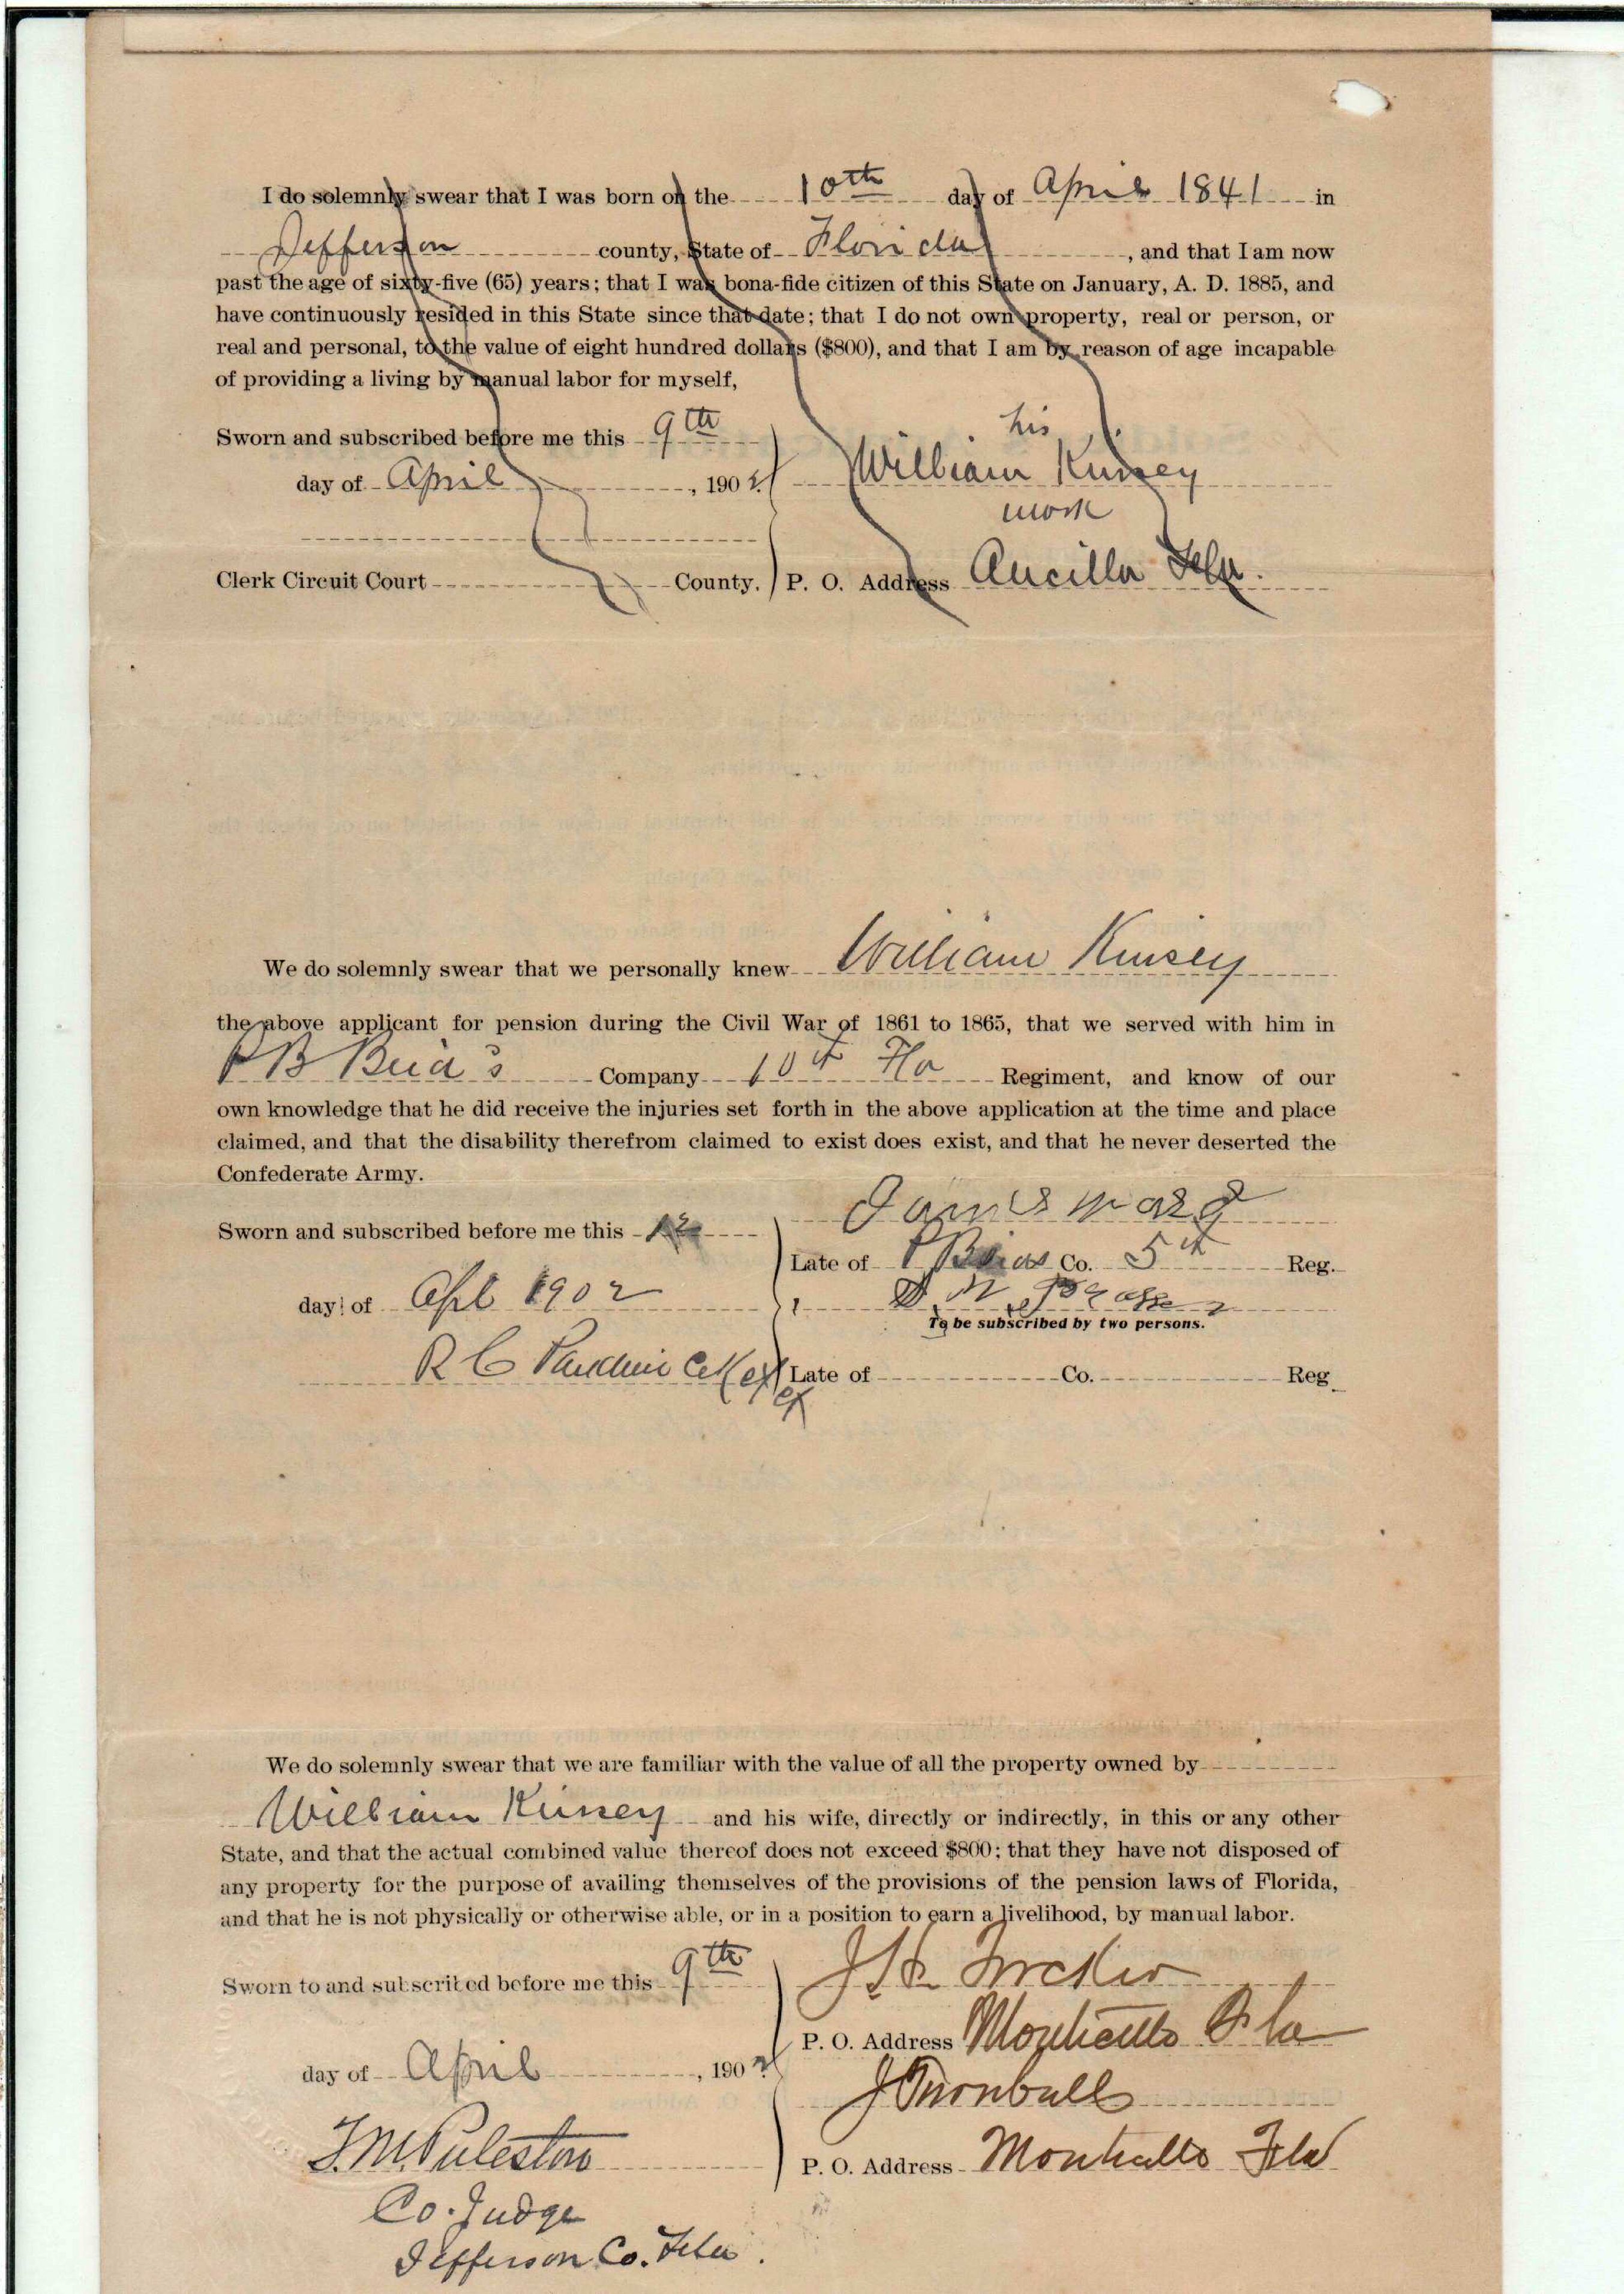 I do solemnly swear that I was born on the 10th day of April 1841 in
Jefferson county, State of Florida, and that I am now
past the age of sixty-five (65) years; that I was bona-fide citizen of this State on January, A. D. 1885, and
have continuously resided in this State since that date; that I do not own property, real or person, or
real and personal, to the value of eight hundred dollars ($800), and that I am by reason of age incapable
of providing a living by manual labor for myself,
his
Sworn and subscribed before me this 9th
William Kinsey
day of April, 1902
mark
Clerk Circuit Court County. P. O. Address Aucilla Fla.
We do solemnly swear that we personally knew William Kinsey
the above applicant for pension during the Civil War of 1861 to 1865, that we served with him in
P B Company 10th Fla Regiment, and know of our
own knowledge that he did receive the injuries set forth in the above application at the time and place
claimed, and that the disability therefrom claimed to exist does exist, and that he never deserted the
Confederate Army.
James
Sworn and subscribed before me this
Late of Co. 5th Reg.
day of Apl 1902
D.
To be subscribed by two persons.
R C
Late of Co. Reg
We do solemnly swear that we are familiar with the value of all the property owned by
William Kinsey and his wife, directly or indirectly, in this or any other
State, and that the actual combined value thereof does not exceed $800; that they have not disposed of
any property for the purpose of availing themselves of the provisions of the pension laws of Florida,
and that he is not physically or otherwise able, or in a position to earn a livelihood, by manual labor.
Sworn to and subscribed before me this 9th
P. O. Address Monticello Fla
day of April, 1902
J Turnbull
T. M. Puleston
P. O. Address Monticello Fla
Co. Judge
Jefferson Co. Fla.